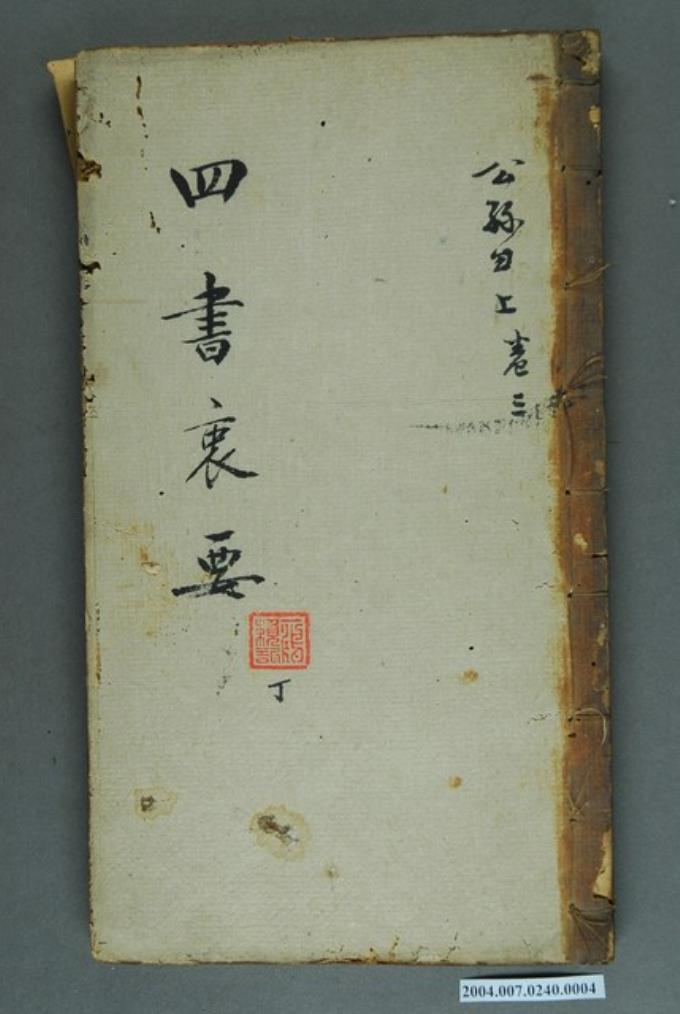 公孫丑上 卷三
四書衷要
丁
2004.007.0240.0004